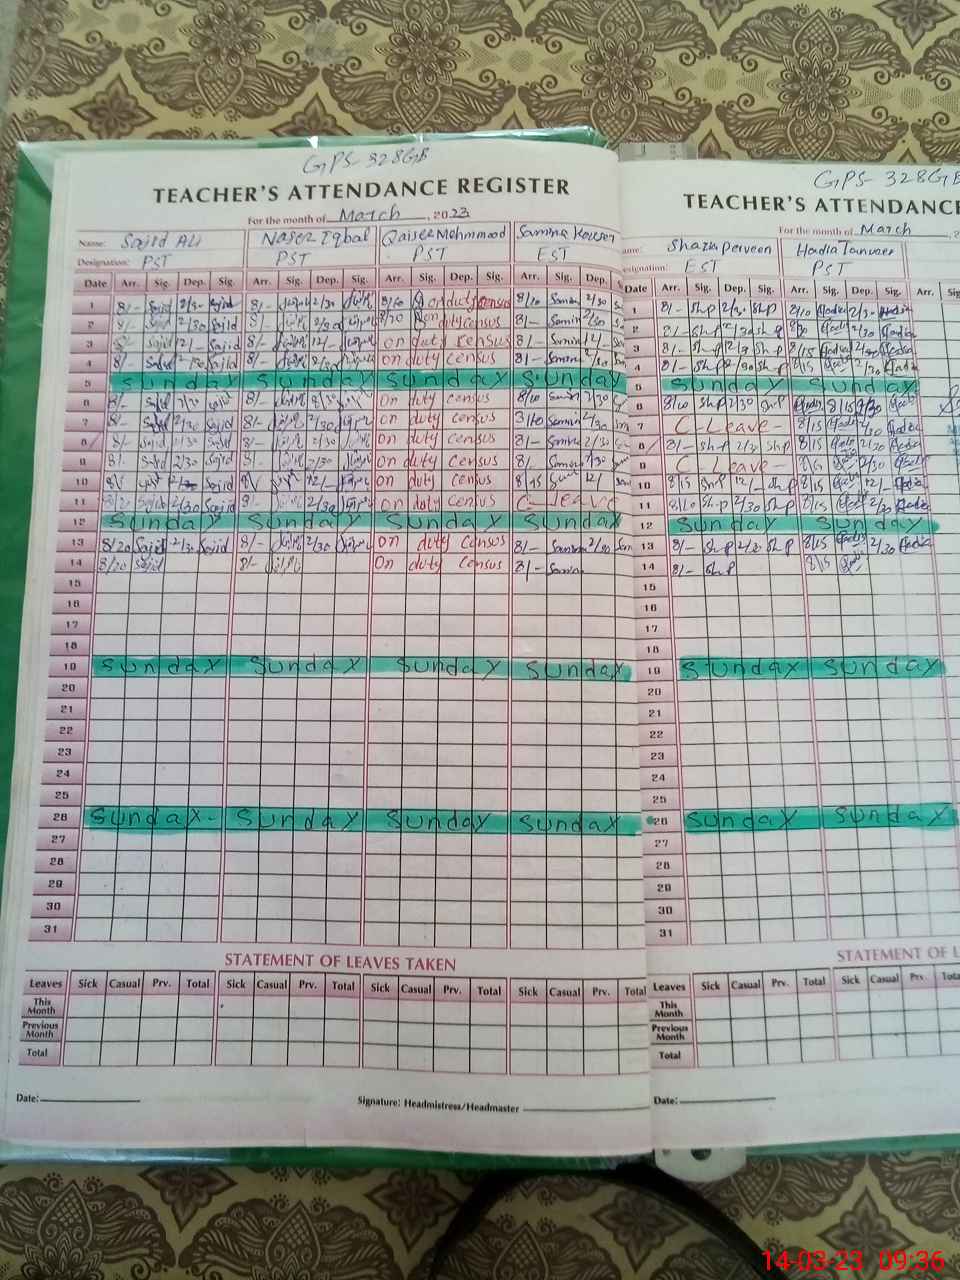 GPS-328GB
TEACHER'S ATTENDANCE REGISTER
For the month of March, 2023
Name: Sajid Ali Naser Iqbal Qaiser Mehmmood Samina Kouser
Designation: PST PST PST EST
Date Arr. Sig. Dep. Sig. Arr. Sig. Dep. Sig. Arr. Sig. Dep. Sig. Arr. Sig. Dep.
1 8/- Sajid 2/30 Sajid 8/- 2/30 8/20 on duty census 8/10 Samin 2/30
2 8/- Sajid 2/30 Sajid 8/- 2/30 8/20 on duty census 8/- Samin 2/30
3 8/- Sajid 12/- Sajid 8/- 12/- on duty census 8/- Samin 12/-
4 8/- Sajid 2/30 Sajid 8/- 2/30 on duty census 8/- Samin 2/30
5 Sunday Sunday Sunday Sunday
6 8/- Sajid 2/30 Sajid 8/- 2/30 on duty census 8/10 Samin 2/30
7 8/- Sajid 2/30 Sajid 8/- 2/30 on duty census Samin 2/30
8 8/- Sajid 2/30 Sajid 8/- 2/30 on duty census 8/- Samina 2/30
9 8/- Sajid 2/30 Sajid 8/- 2/30 on duty census 8/- Samin 2/30
10 12/- on duty census 8/15 12/-
11 8/20 Sajid 2/30 Sajid 8/- 2/30 on duty census C-leave
12 Sunday Sunday Sunday Sunday
13 8/20 Sajid 2/30 Sajid 8/- 2/30 on duty census 8/- Samina 2/30
14 8/20 Sajid 8/- On duty census 8/- Samina
15
16
17
18
19 Sunday Sunday Sunday Sunday
20
21
22
23
24
25
26 Sunday Sunday Sunday Sunday
27
28
29
30
31
STATEMENT OF LEAVES TAKEN
Leaves Sick Casual Prv. Total Sick Casual Prv. Total Sick Casual Prv. Total Sick Casual Prv. Total
This Month
Previous Month
Total
Date: Signature: Headmistress/Headmaster
GPS-328GB
TEACHER'S ATTENDANCE
For the month of March
Shazia Perveen Hadia Tanveer
EST PST
Date Arr. Sig. Dep. Sig. Arr. Sig. Dep. Sig. Arr. Sig.
1 8/- Sh.P 2/30 Sh.P 8/10 Hadia 2/30 Hadia
2 8/- Sh.P 2/30 Sh.P Hadia 2/30 Hadia
3 8/- Sh.P Sh.P 8/15 Hadia Hadia
4 8/- Sh.P 2/30 Sh.P 8/15 Hadia 2/30 Hadia
5 Sunday Sunday
6 8/10 Sh.P 2/30 Sh.P Hadia 8/15 2/30 Hadia
7 C-Leave- 8/15 Hadia 2/30 Hadia
8 8/- Sh.P Sh.P 8/15 Hadia 2/30 Hadia
9 C-Leave- 8/15 Hadia 2/30 Hadia
10 8/15 Sh.P 12/- Sh.P 8/15 Hadia 12/- Hadia
11 8/10 Sh.P 2/30 Sh.P 8/15 Hadia 2/30 Hadia
12 Sunday Sunday
13 8/- Sh.P 2/30 Sh.P 8/15 Hadia 2/30 Hadia
14 8/- Sh.P 8/15 Hadia
15
16
17
18
19 Sunday Sunday
20
21
22
23
24
25
26 Sunday Sunday
27
28
29
30
31
STATEMENT OF
Leaves Sick Casual Prv. Total Sick Casual Prv.
This Month
Previous Month
Total
Date:
14-03-23 09:36